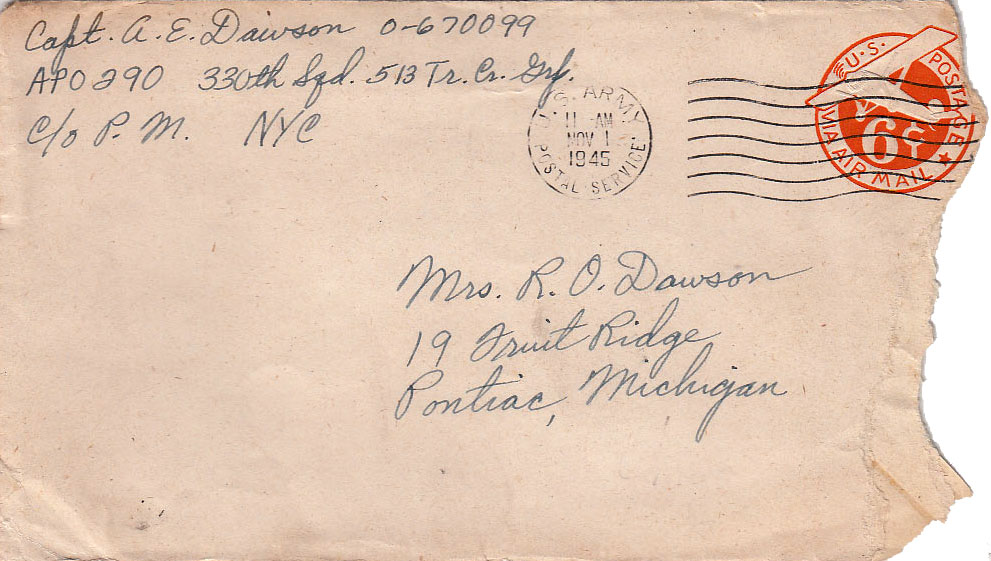 Capt. A. E. Dawson O-670099
APO 290 330th Sqd. 513 Tr. Cr. Grp.
c/o P. M. NYC
U.S. ARMY
11 -AM
NOV 1
1945
POSTAL SERVICE
U.S. POSTAGE
6¢
VIA AIR MAIL
Mrs. R. O. Dawson
19 Fruit Ridge
Pontiac, Michigan